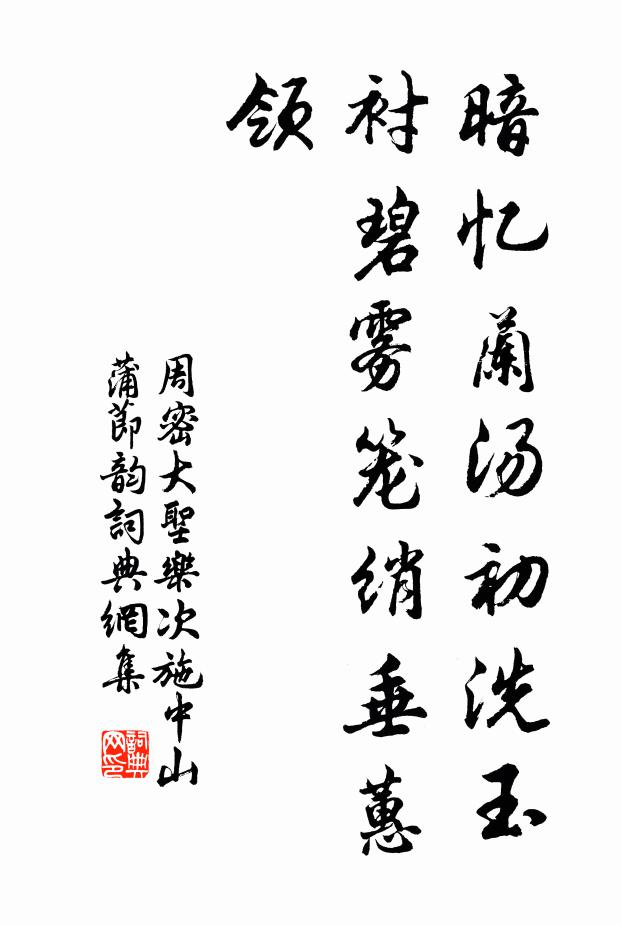 暗忆蘭汤初洗玉
衬碧雾笼绡垂蕙
领
周密大聖樂次施中山
蒲節韵詞典網集
詞典
网印